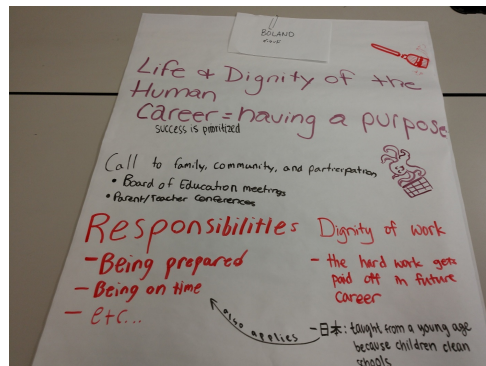 BOLAND
Life & Dignity of the
Human
Career = having a purpose
success is prioritized
Call to family, community, and participation
• Board of Education meetings
• Parent/Teacher Conferences
Responsibilities
- Being prepared
- Being on time
- etc...
Dignity of work
- the hard work gets
paid off in future
career
also applies
- 日本: taught from a young age
because children clean
schools